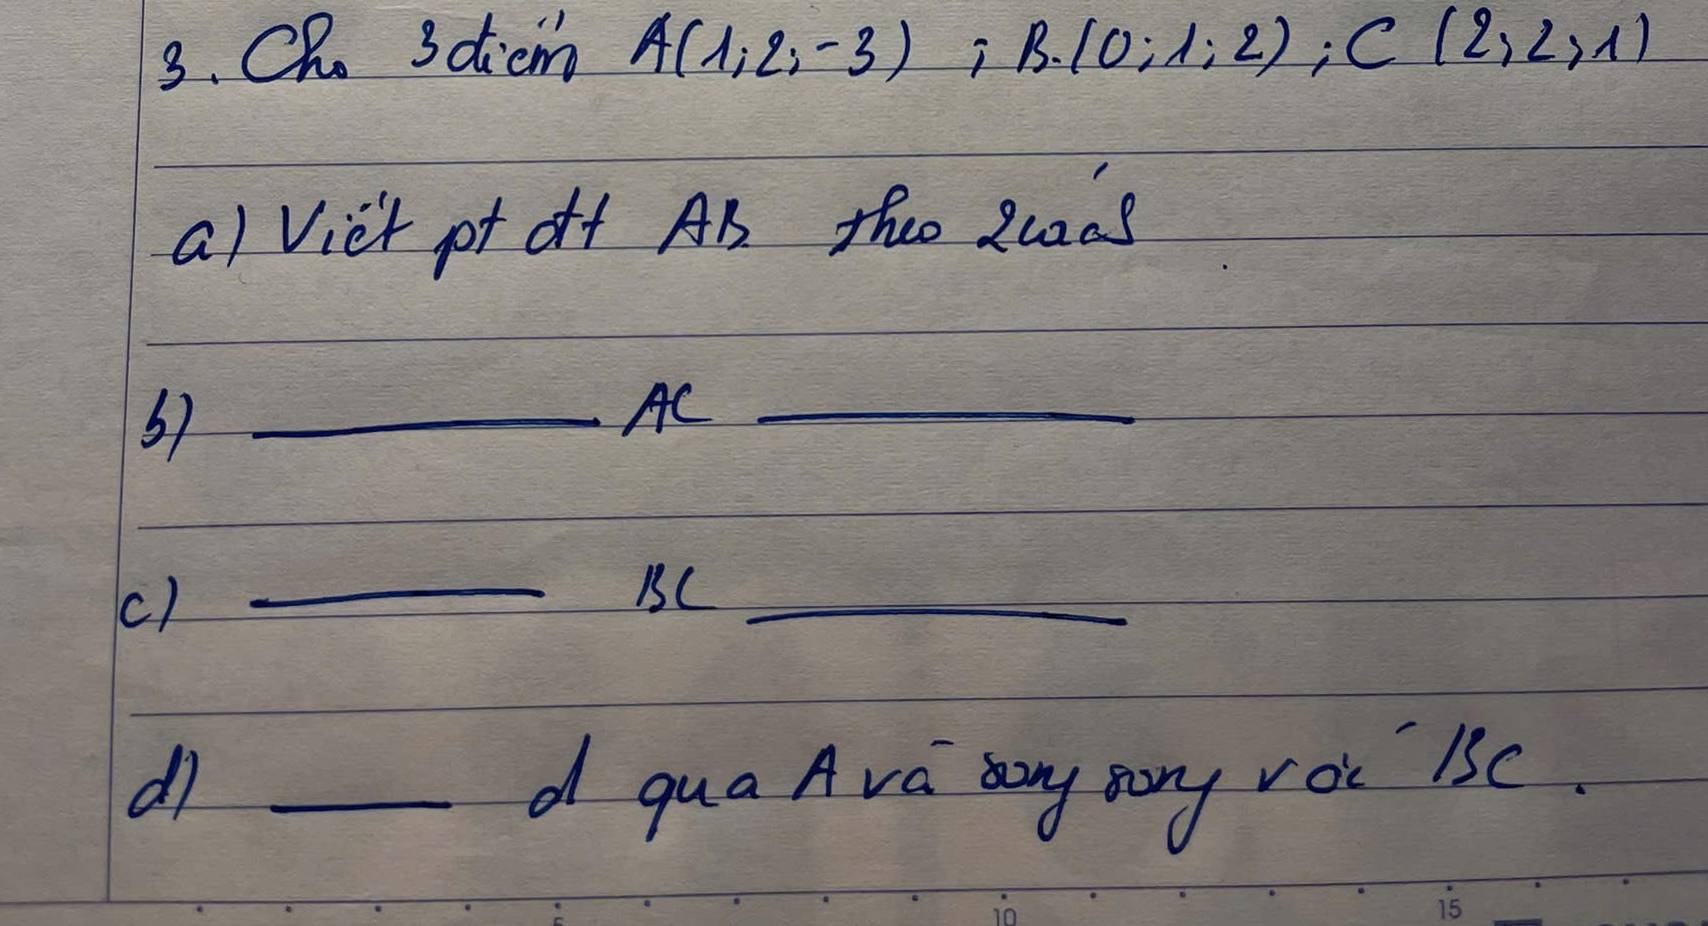 3. Cho 3 điểm A(1;2;-3) ; B.(0;1;2) ; C (2;2;1)
a) Viết pt đt AB theo 2 cách
b) ——— AC ———
c) ——— BC ———
d) ——— d qua A và song song với BC.
5 10 15